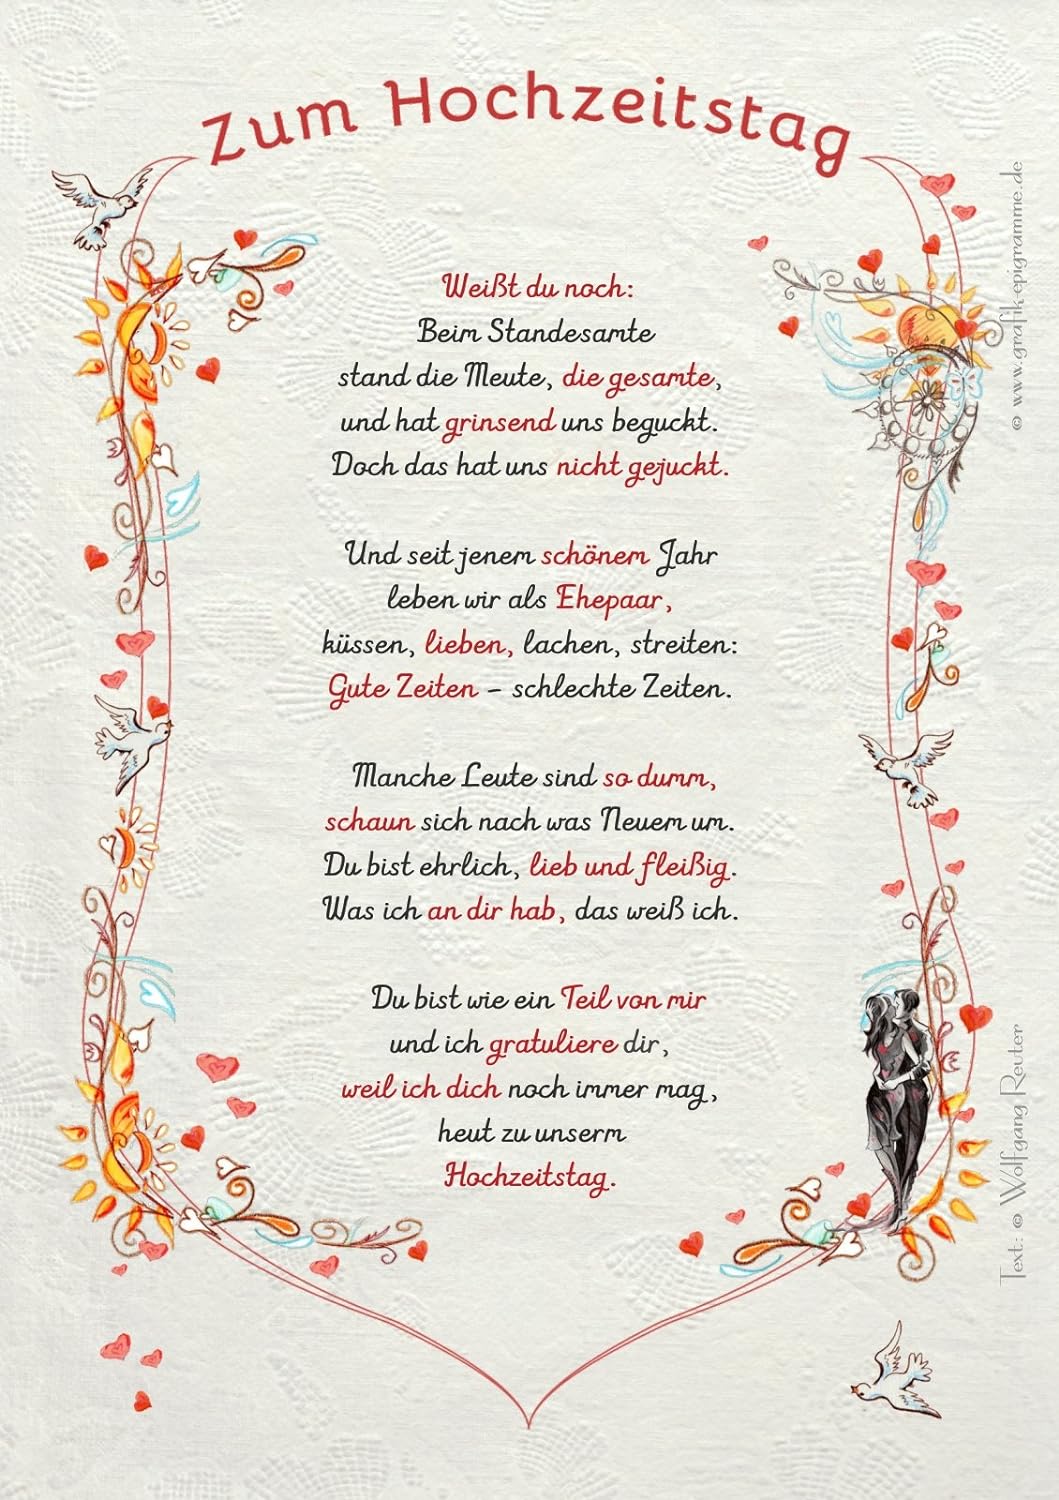 Zum Hochzeitstag
Weißt du noch:
Beim Standesamte
stand die Meute, die gesamte,
und hat grinsend uns beguckt.
Doch das hat uns nicht gejuckt.
Und seit jenem schönem Jahr
leben wir als Ehepaar,
küssen, lieben, lachen, streiten:
Gute Zeiten – schlechte Zeiten.
Manche Leute sind so dumm,
schaun sich nach was Neuem um.
Du bist ehrlich, lieb und fleißig.
Was ich an dir hab, das weiß ich.
Du bist wie ein Teil von mir
und ich gratuliere dir,
weil ich dich noch immer mag,
heut zu unserm
Hochzeitstag.
© www.grafik-epigramme.de
Text: © Wolfgang Reuter